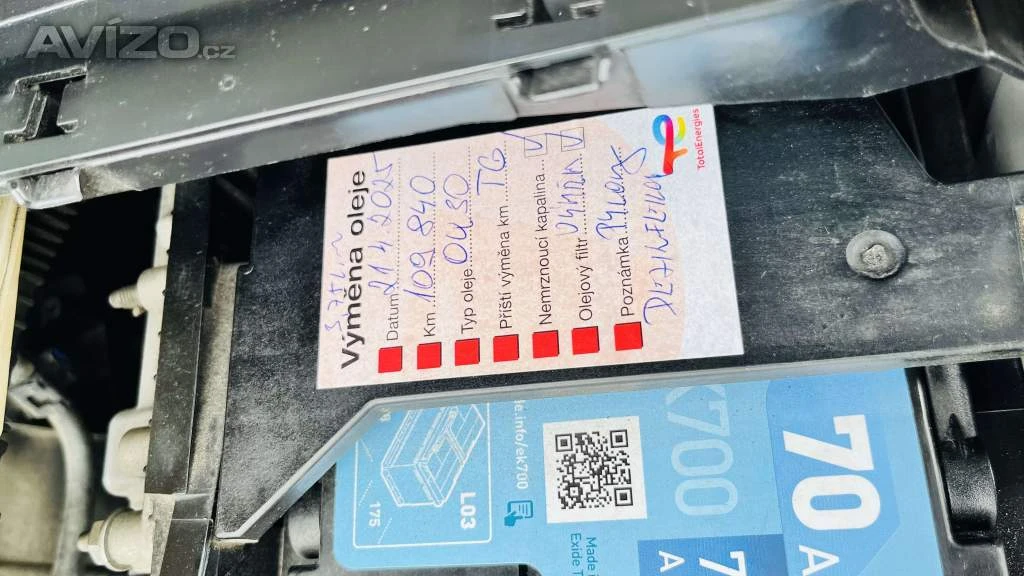 AVÍZO.cz
3,75L
Výměna oleje
Datum 21.4.2025
Km 109.840
Typ oleje 0W30
Příští výměna km TG
Nemrznoucí kapalina...
Olejový filtr
Poznámka
TotalEnergies
L03
175
le.info/ek700
K700
70
A
7
A
Made
Exide T